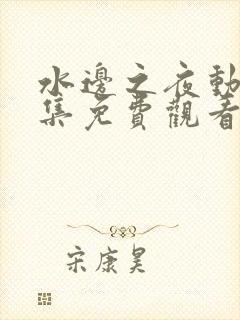 水邊之夜動
集免費觀看
宋康昊